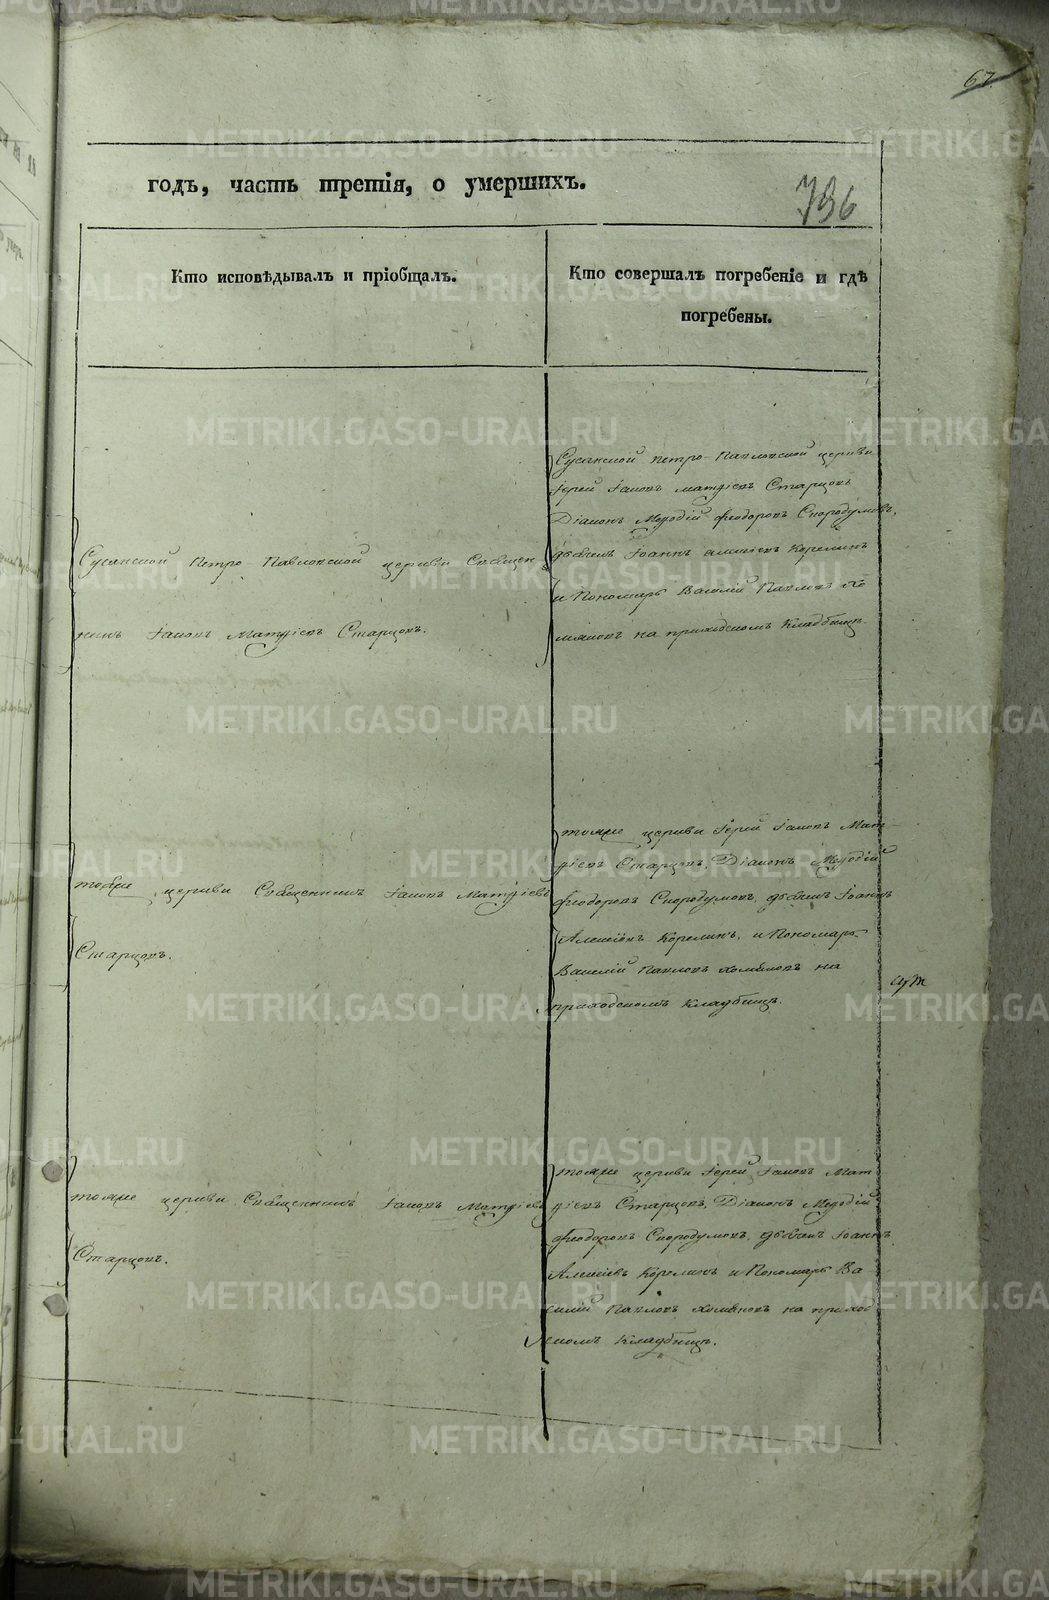 67.
годъ, часть третія, о умершихъ.
796
Кто исповѣдывалъ и пріобщалъ.
Кто совершалъ погребеніе и гдѣ
погребены.
Сусанской Петро Павловской церкви Священ
никъ Іаковъ Матѳіевъ Старцовъ.
Сусанской Петро-Павловской церкви
Іерей Іаковъ Матѳіевъ Старцовъ
Діаконъ Меѳодій Феодоровъ Скородумовъ,
дьячекъ Іоаннъ Алексіевъ Корелинъ
и Пономарь Василій Павловъ Хо
мяковъ на приходскомъ Кладбищѣ.
тойже церкви Священникъ Іаковъ Матѳіевъ
Старцовъ.
тойже церкви Іерей Іаковъ Мат-
ѳіевъ Старцовъ, Діаконъ Меѳодій
Феодоровъ Скородумовъ, дьячекъ Іоаннъ
Алексіевъ Корелинъ, и Пономарь
Василій Павловъ Хомяковъ на
приходскомъ Кладбищѣ.
тойже церкви Священникъ Іаковъ Матѳіевъ
Старцовъ.
тойже церкви Іерей Іаковъ Мат
ѳіевъ Старцовъ, Діаконъ Меѳодій
Феодоровъ Скородумовъ, дьячекъ Іоаннъ
Алексіевъ Корелинъ и Пономарь Ва
силій Павловъ Хомяковъ на приход
скомъ Кладбищѣ.
METRIKI.GASO-URAL.RU